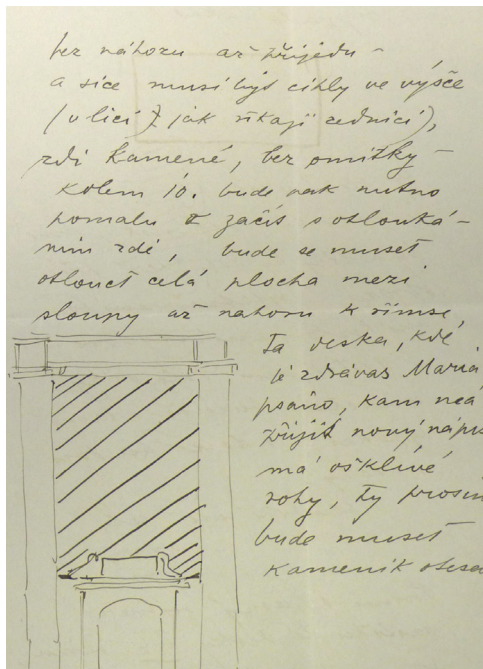 bez náhozu až přijedu –
a sice musí být cihly ve výšce
(v lici jak říkají zedníci),
zdi kamené, bez omítky –
kolem 10. bude pak nutno
pomalu začít s otlouká–
ním zdi, bude se muset
otlouct celá plocha mezi
sloupy až nahoru k římse,
Ta deska, kde
je zdrávas Maria
psáno, kam má
přijít nový nápis
má ošklivé
rohy, ty prosím
bude muset
kameník otesa